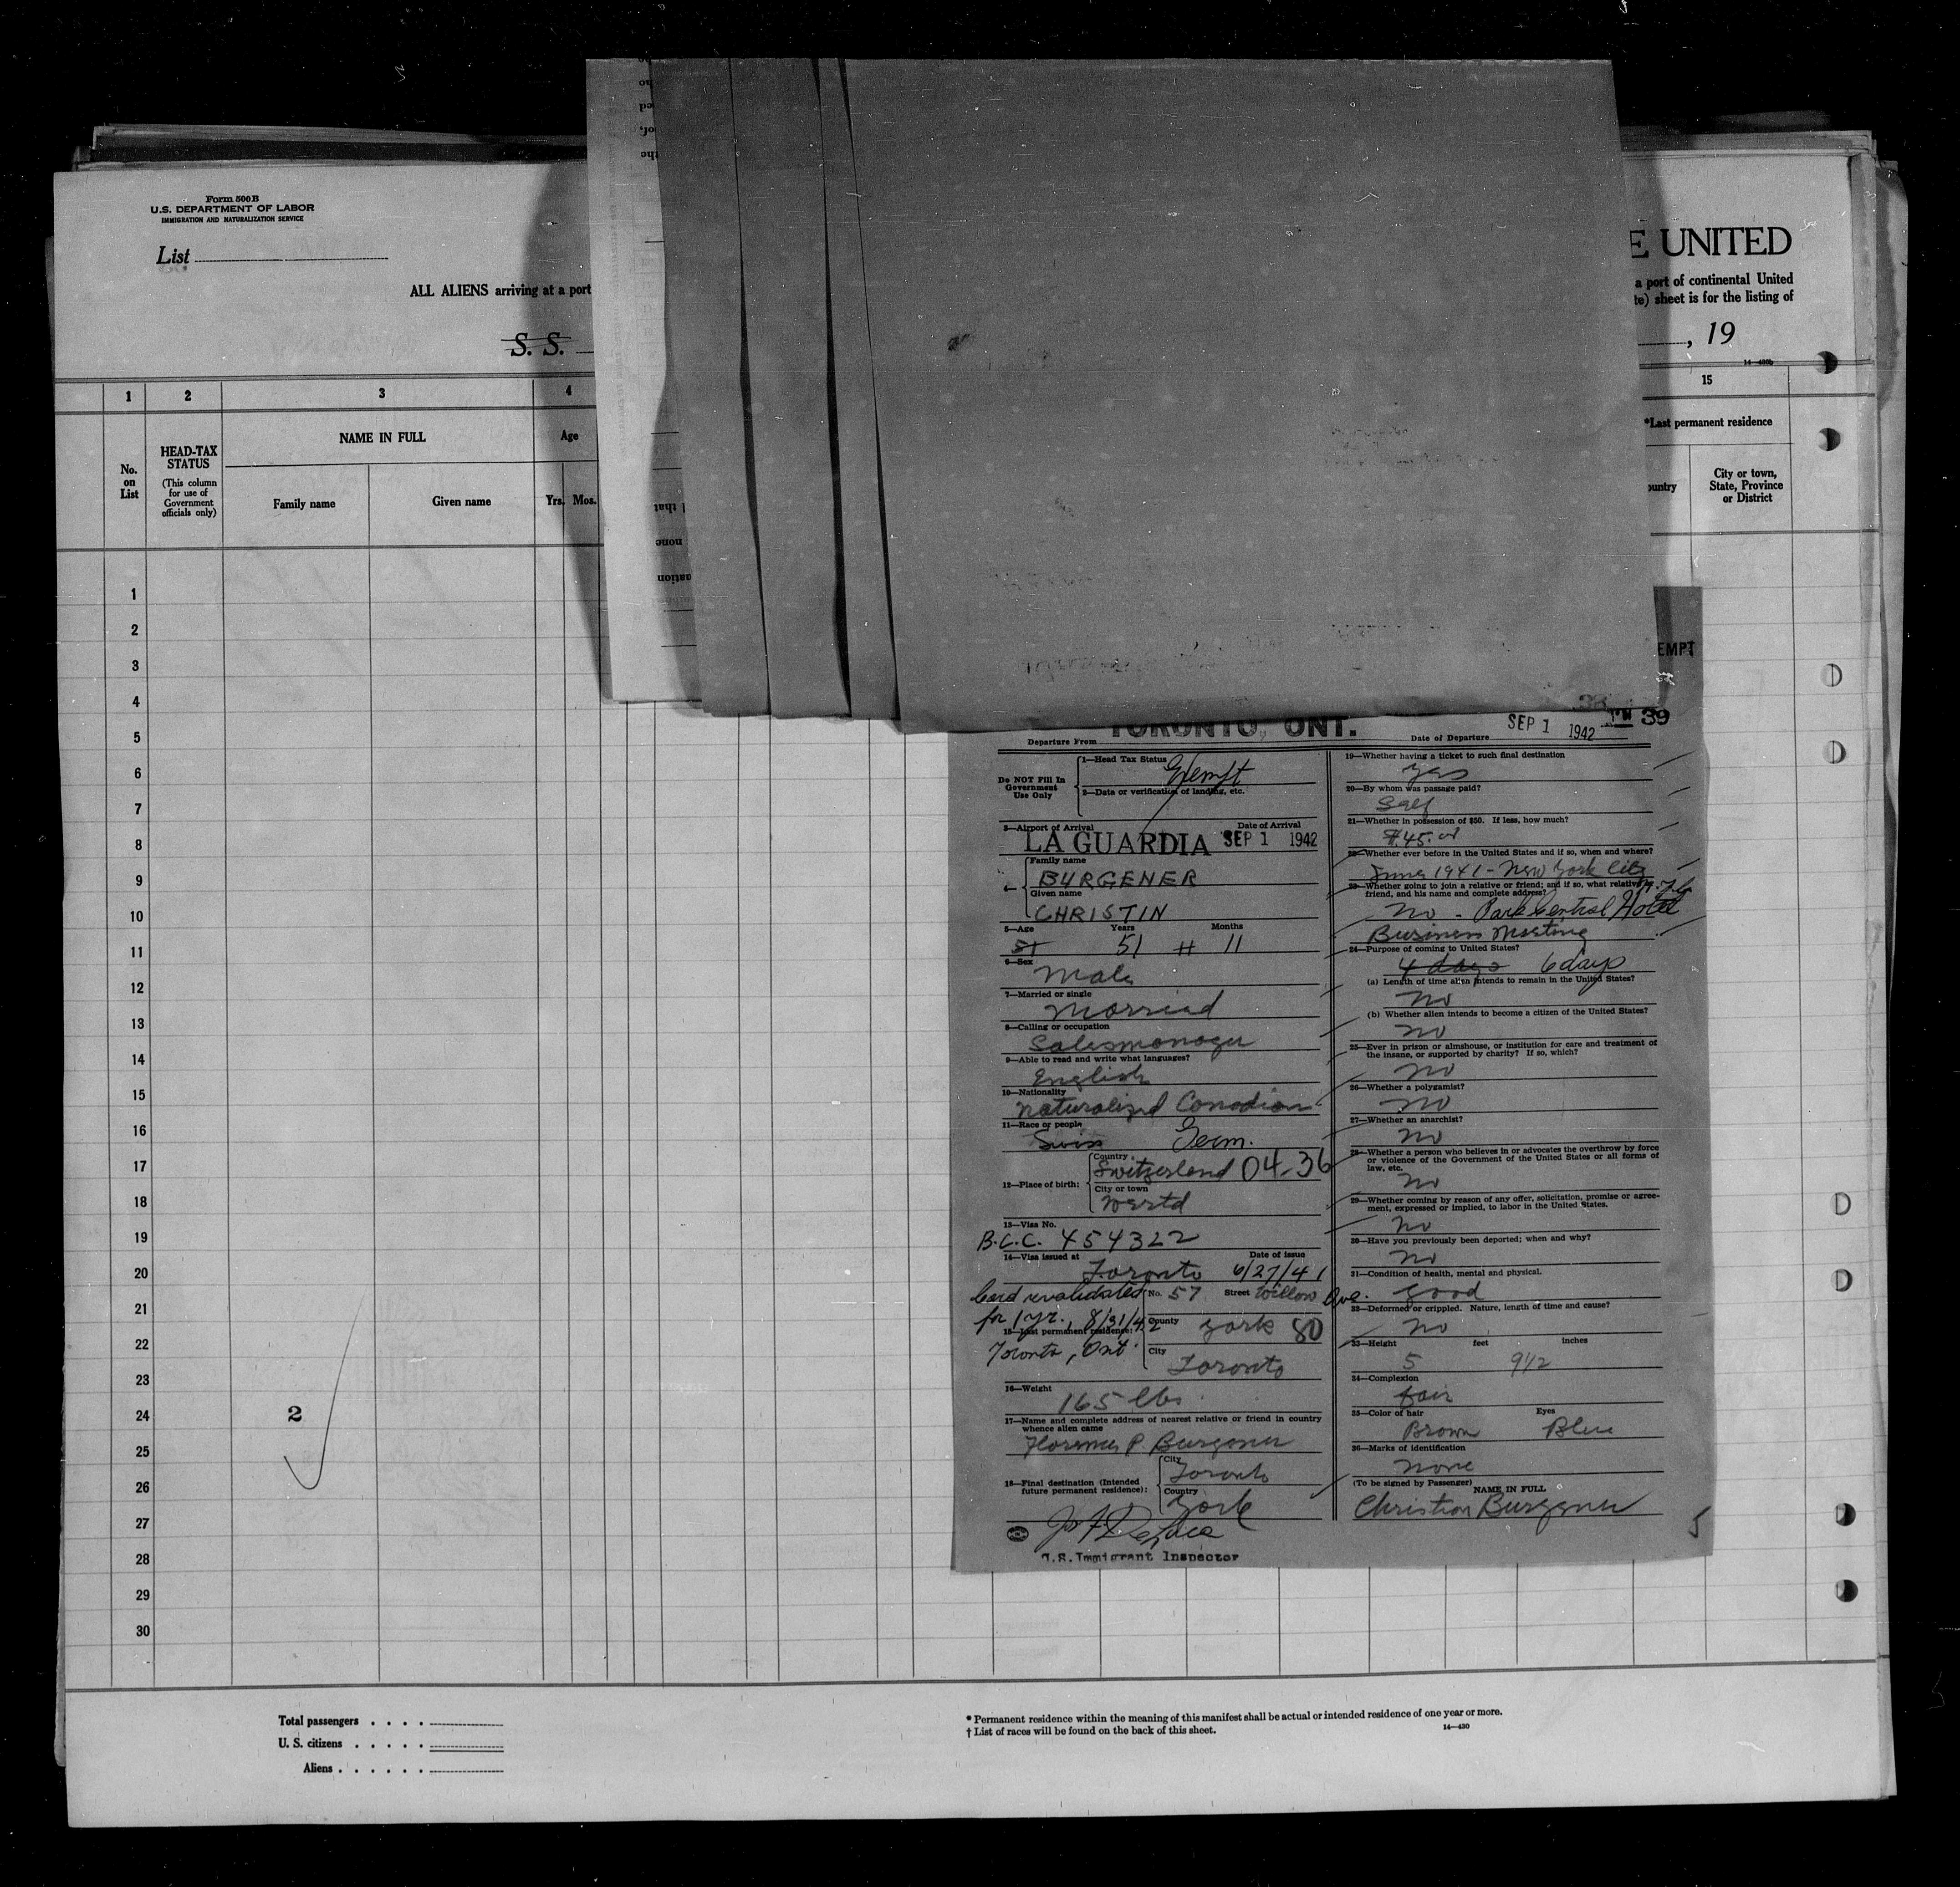 Form 500B
U.S. DEPARTMENT OF LABOR
IMMIGRATION AND NATURALIZATION SERVICE
List
ALL ALIENS arriving at a port
S. S.
E UNITED
a port of continental United
te) sheet is for the listing of
, 19
14—430b
1 2 3 4 15
No. on List
HEAD-TAX STATUS
(This column for use of Government officials only)
NAME IN FULL
Family name Given name
Age
Yrs. Mos.
*Last permanent residence
ountry
City or town, State, Province or District
1
2
3
4
5
6
7
8
9
10
11
12
13
14
15
16
17
18
19
20
21
22
23
24
25
26
27
28
29
30
2
EMPT
39
Departure From TORONTO, ONT. Date of Departure SEP 1 1942
Do NOT Fill In Government Use Only
1—Head Tax Status Exempt
2—Data or verification of landing, etc.
3—Airport of Arrival Date of Arrival
LA GUARDIA SEP 1 1942
Family name
BURGENER
Given name
CHRISTIN
5—Age Years Months
51 51 11
6—Sex
Male
7—Married or single
Married
8—Calling or occupation
Salesmanager
9—Able to read and write what languages?
English
10—Nationality
Naturalized Canadian
11—Race or people
Swiss Germ.
12—Place of birth:
Country
Switzerland 04-36
City or town
13—Visa No.
B.C.C. 454322
14—Visa issued at Date of issue
Toronto 6/27/41
Card revalidated
for 1 yr., 8/31/42
Toronto, Ont.
15—Last permanent residence:
No. 57 Street Willow Ave.
County York 80
City
Toronto
16—Weight
165 lbs.
17—Name and complete address of nearest relative or friend in country whence alien came
Florence P. Burgener
18—Final destination (Intended future permanent residence):
City
Toronto
Country
York
U.S. Immigrant Inspector
19—Whether having a ticket to such final destination
yes
20—By whom was passage paid?
Self
21—Whether in possession of $50. If less, how much?
$45.
22—Whether ever before in the United States and if so, when and where?
June 1941 - New York City
23—Whether going to join a relative or friend; and if so, what relative or friend, and his name and complete address?
No - Park Central Hotel
Business Meeting
24—Purpose of coming to United States?
4 days 6 days
(a) Length of time alien intends to remain in the United States?
No
(b) Whether alien intends to become a citizen of the United States?
No
25—Ever in prison or almshouse, or institution for care and treatment of the insane, or supported by charity? If so, which?
No
26—Whether a polygamist?
No
27—Whether an anarchist?
No
28—Whether a person who believes in or advocates the overthrow by force or violence of the Government of the United States or all forms of law, etc.
No
29—Whether coming by reason of any offer, solicitation, promise or agreement, expressed or implied, to labor in the United States.
No
30—Have you previously been deported; when and why?
No
31—Condition of health, mental and physical.
Good
32—Deformed or crippled. Nature, length of time and cause?
No
33—Height feet inches
5 9½
34—Complexion
fair
35—Color of hair Eyes
Brown Blue
36—Marks of identification
None
(To be signed by Passenger) NAME IN FULL
Christian Burgener
5
Total passengers . . . .
U. S. citizens . . . . .
Aliens . . . . . .
* Permanent residence within the meaning of this manifest shall be actual or intended residence of one year or more.
† List of races will be found on the back of this sheet.
14—430